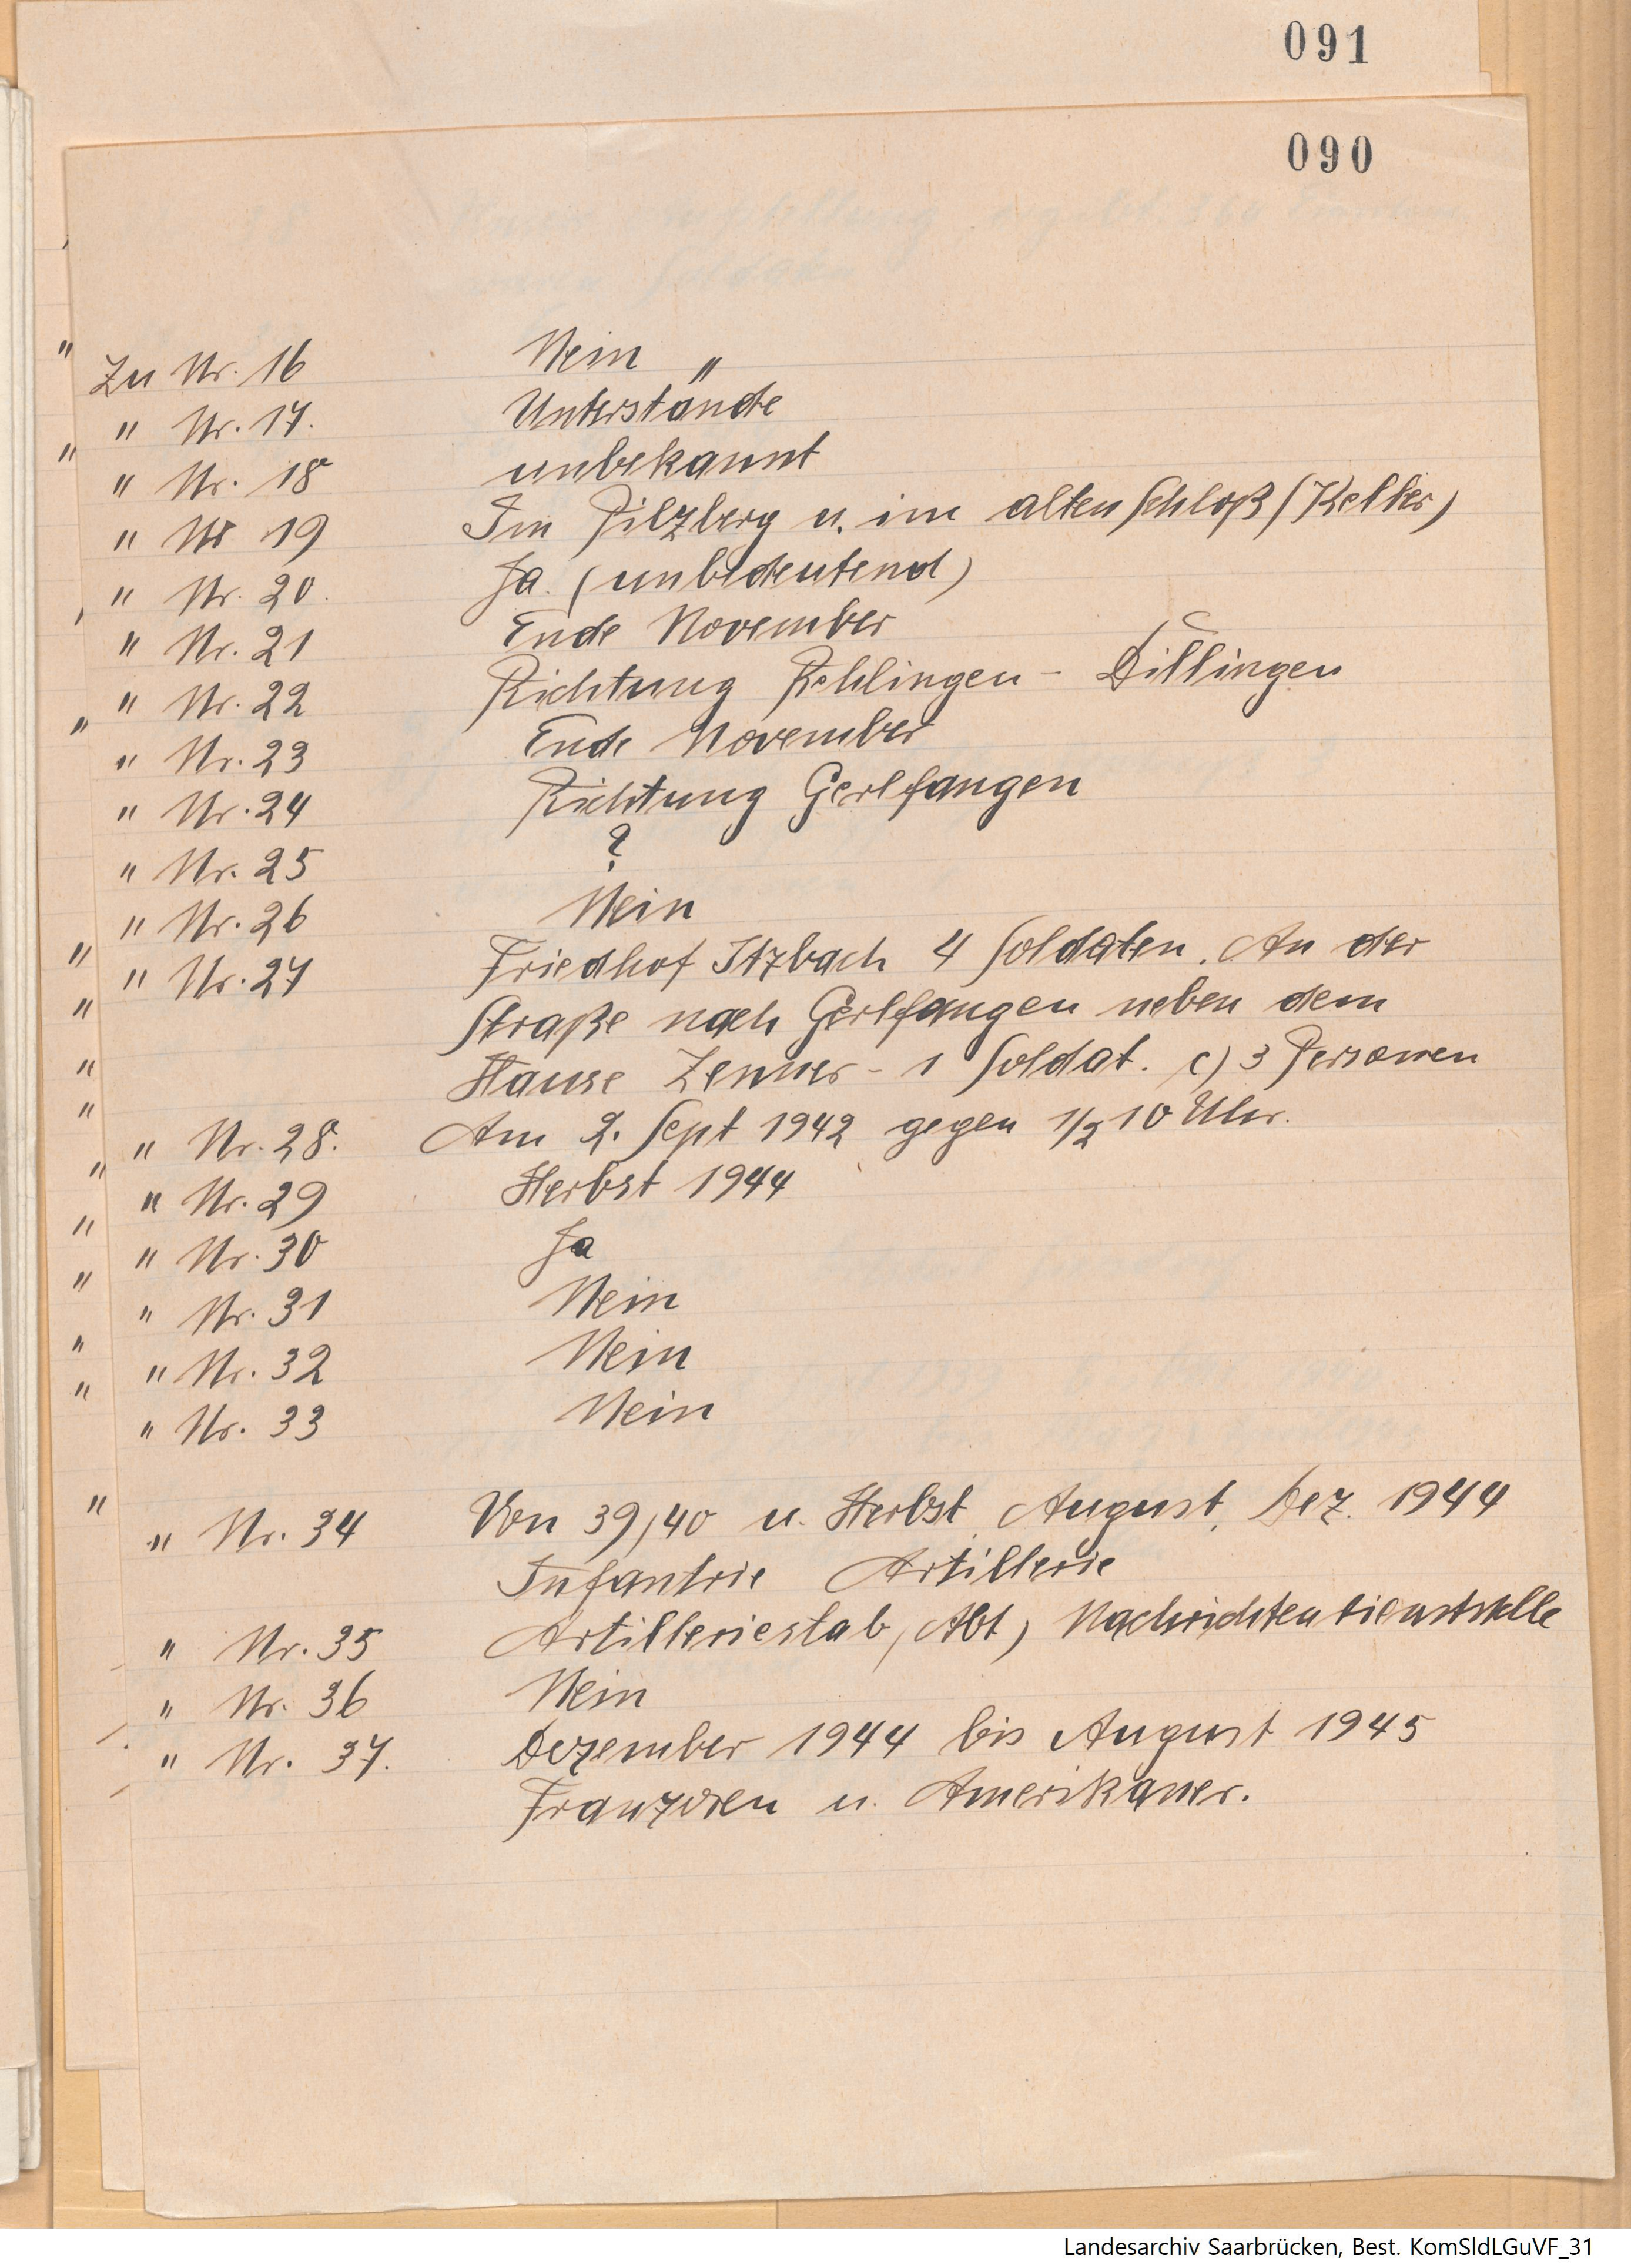 091
090
Zu Nr. 16 Nein
" Nr. 17. Unterstände
" Nr. 18 unbekannt
" Nr 19 Im Pilzberg u. im alten Schloß (Keller)
" Nr. 20. Ja. (unbedeutend)
" Nr. 21 Ende November
" Nr. 22 Richtung Rehlingen - Dillingen
" Nr. 23 Ende November
" Nr. 24 Richtung Gerlfangen
" Nr. 25 ?
" Nr. 26 Nein
" Nr. 27 Friedhof Itzbach 4 Soldaten. An der
Straße nach Gerlfangen neben dem
Hause Zenner - 1 Soldat. c) 3 Personen
" Nr. 28. Am 2. Sept 1942 gegen 1/2 10 Uhr.
" Nr. 29 Herbst 1944
" Nr. 30 Ja
" Nr. 31 Nein
" Nr. 32 Nein
" Nr. 33 Nein
" Nr. 34 Von 39/40 u. Herbst, August, Dez. 1944
Infantrie Artillerie
" Nr. 35 Artilleriestab (Abt) Nachrichtendienststelle
" Nr. 36 Nein
" Nr. 37. Dezember 1944 bis August 1945
Franzosen u. Amerikaner.
Landesarchiv Saarbrücken, Best. KomSldLGuVF_31